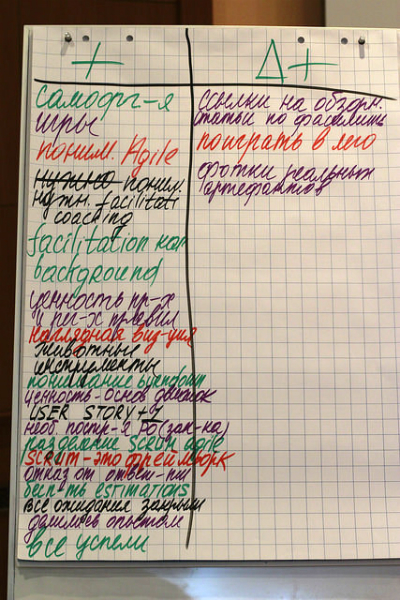 +
самофа-я
игры
поним. Agile
нужно поним.
нужн. facilitati
coaching
facilitation как
background
ценность пр-х
и рег-х правил
наглядная виз-ция
животные
инструменты
понимание burndown
ценность-основ движок
USER STORY + 7
необ. постр-я PO (зак-ка)
разделение SCRUM agile
SCRUM - это фреймворк
отказ от ответ-ти
бесп-ть estimations
все ожидания закрыли
делились опытом
все успели
Δ+
ссылки на обзорн.
статьи по фасилит
поиграть в лего
фотки реальных
артефактов